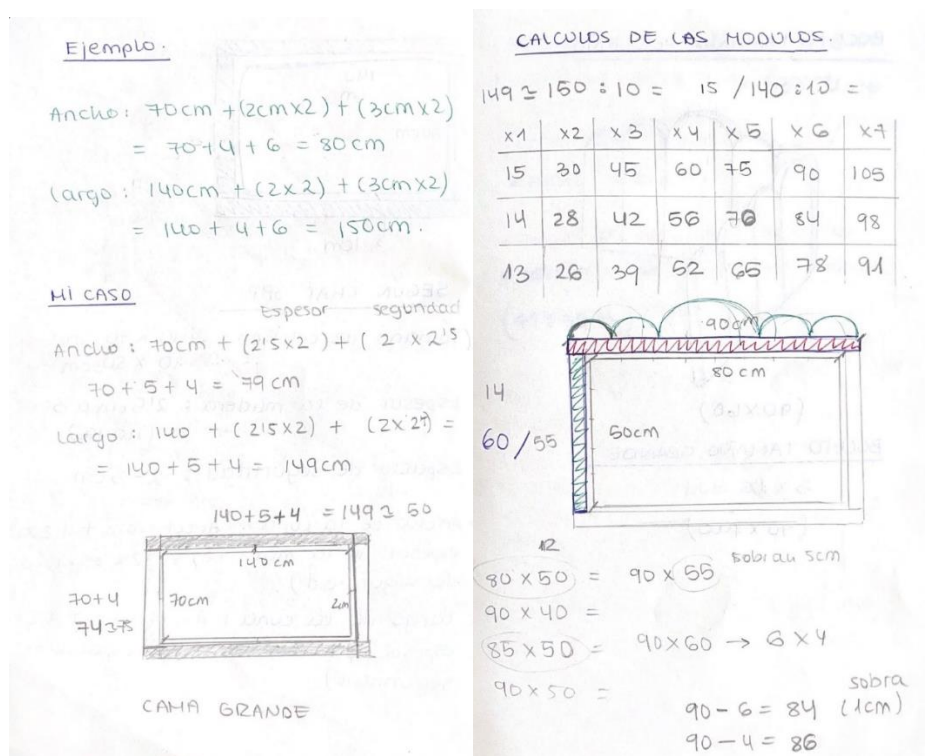 Ejemplo.
Ancho: 70cm + (2cm x 2) + (3cm x 2)
= 70 + 4 + 6 = 80 cm
largo: 140cm + (2 x 2) + (3cm x 2)
= 140 + 4 + 6 = 150cm.
MI CASO
Espesor segundad
Ancho: 70cm + (2'5 x 2) + (2 x 2'15
70 + 5 + 4 = 79 cm
Largo: 140 + (2'5 x 2) + (2 x 2) =
= 140 + 5 + 4 = 149cm
140+5+4 = 149 ≃ 50
140 cm
70+4
70cm
2cm
74≃75
CAMA GRANDE
CALCULOS DE LAS MODULOS.
149 ≃ 150 : 10 = 15 / 140 : 10 =
x1 x2 x3 x4 x5 x6 x7
15 30 45 60 75 90 105
14 28 42 56 70 84 98
13 26 39 52 65 78 91
90cm
80 cm
14
60 / 55
50cm
12
80 x 50 = 90 x 55 sobran 5cm
90 x 40 =
85 x 50 = 90 x 60 → 6 x 4
90 x 50 =
sobra
90 - 6 = 84 (1cm)
90 - 4 = 86